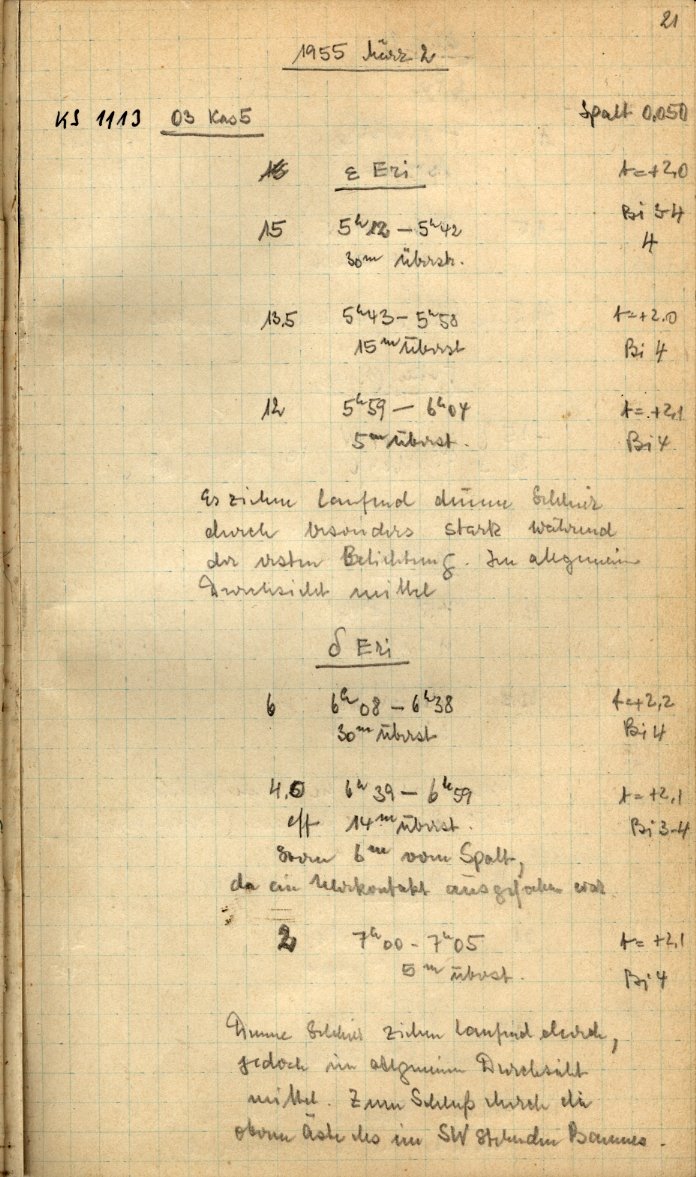 21
1955 März 2
KS 1113 03 Kas5 Spalt 0,050
ε Eri t=+2,0
Bi 3-4
15 5h12 – 5h42 4
30m überst.
13,5 5h43 – 5h58 t=+2.0
15m überst Bi 4
12 5h59 – 6h04 t=+2,1
5m überst. Bi 4
Es ziehen laufend dünne Schleier
durch besonders stark während
der ersten Belichtung. Im allgemeinen
Durchsicht mittel
δ Eri
6 6h08 – 6h38 t=+2,2
30m überst Bi 4
4,5 6h39 – 6h59 t=+2,1
eff 14m überst. Bi 3-4
6m vom Spalt,
da ein Uhrkontakt ausgefallen war
2 7h00 - 7h05 t=+2,1
5m überst. Bi 4
Dünne Schleier ziehen laufend durch,
jedoch im allgemeinen Durchsicht
mittel. Zum Schluß durch die
oberen Äste des im SW stehenden Baumes.